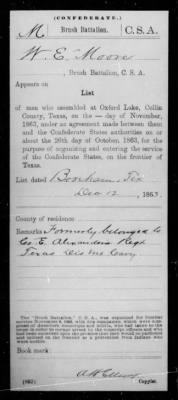 (CONFEDERATE.)
M Brush Battalion. C.S.A.
W. E. Moore
, Brush Battalion, C. S. A.
Appears on
List
of men who assembled at Oxford Lake, Collin
County, Texas, on the — day of November,
1863, under an agreement made between them
and the Confederate States authorities on or
about the 26th day of October, 1863, for the
purpose of organizing and entering the service
of the Confederate States, on the frontier of
Texas.
List dated Bonham, Tex
Dec 12, 1863.
County of residence
Remarks Formerly belonged to
Co E. Alexander's Regt
Texas Dis Mt Cavy
The "Brush Battalion," C. S. A., was organized for frontier
service November
Book mark:
Copyist.